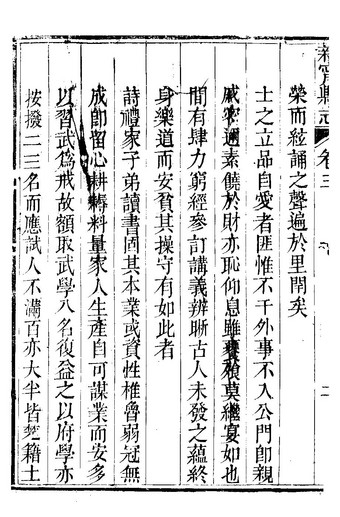 新寧縣志 卷三 二
榮而絃誦之聲遍於里閈矣
士之立品自愛者匪惟不干外事不入公門卽親
戚寧過素饒於財亦恥仰息雖饔飧莫繼宴如也
間有肆力窮經參訂講義辨晰古人未發之蘊終
身樂道而安貧其操守有如此者
詩禮家子弟讀書固其本業或資性椎魯弱冠無
成卽留心耕耨料量家人生產自可謀業而安多
以習武爲戒故額取武學八名復益之以府學亦
按撥二三名而應試人不滿百亦大半皆冒籍土